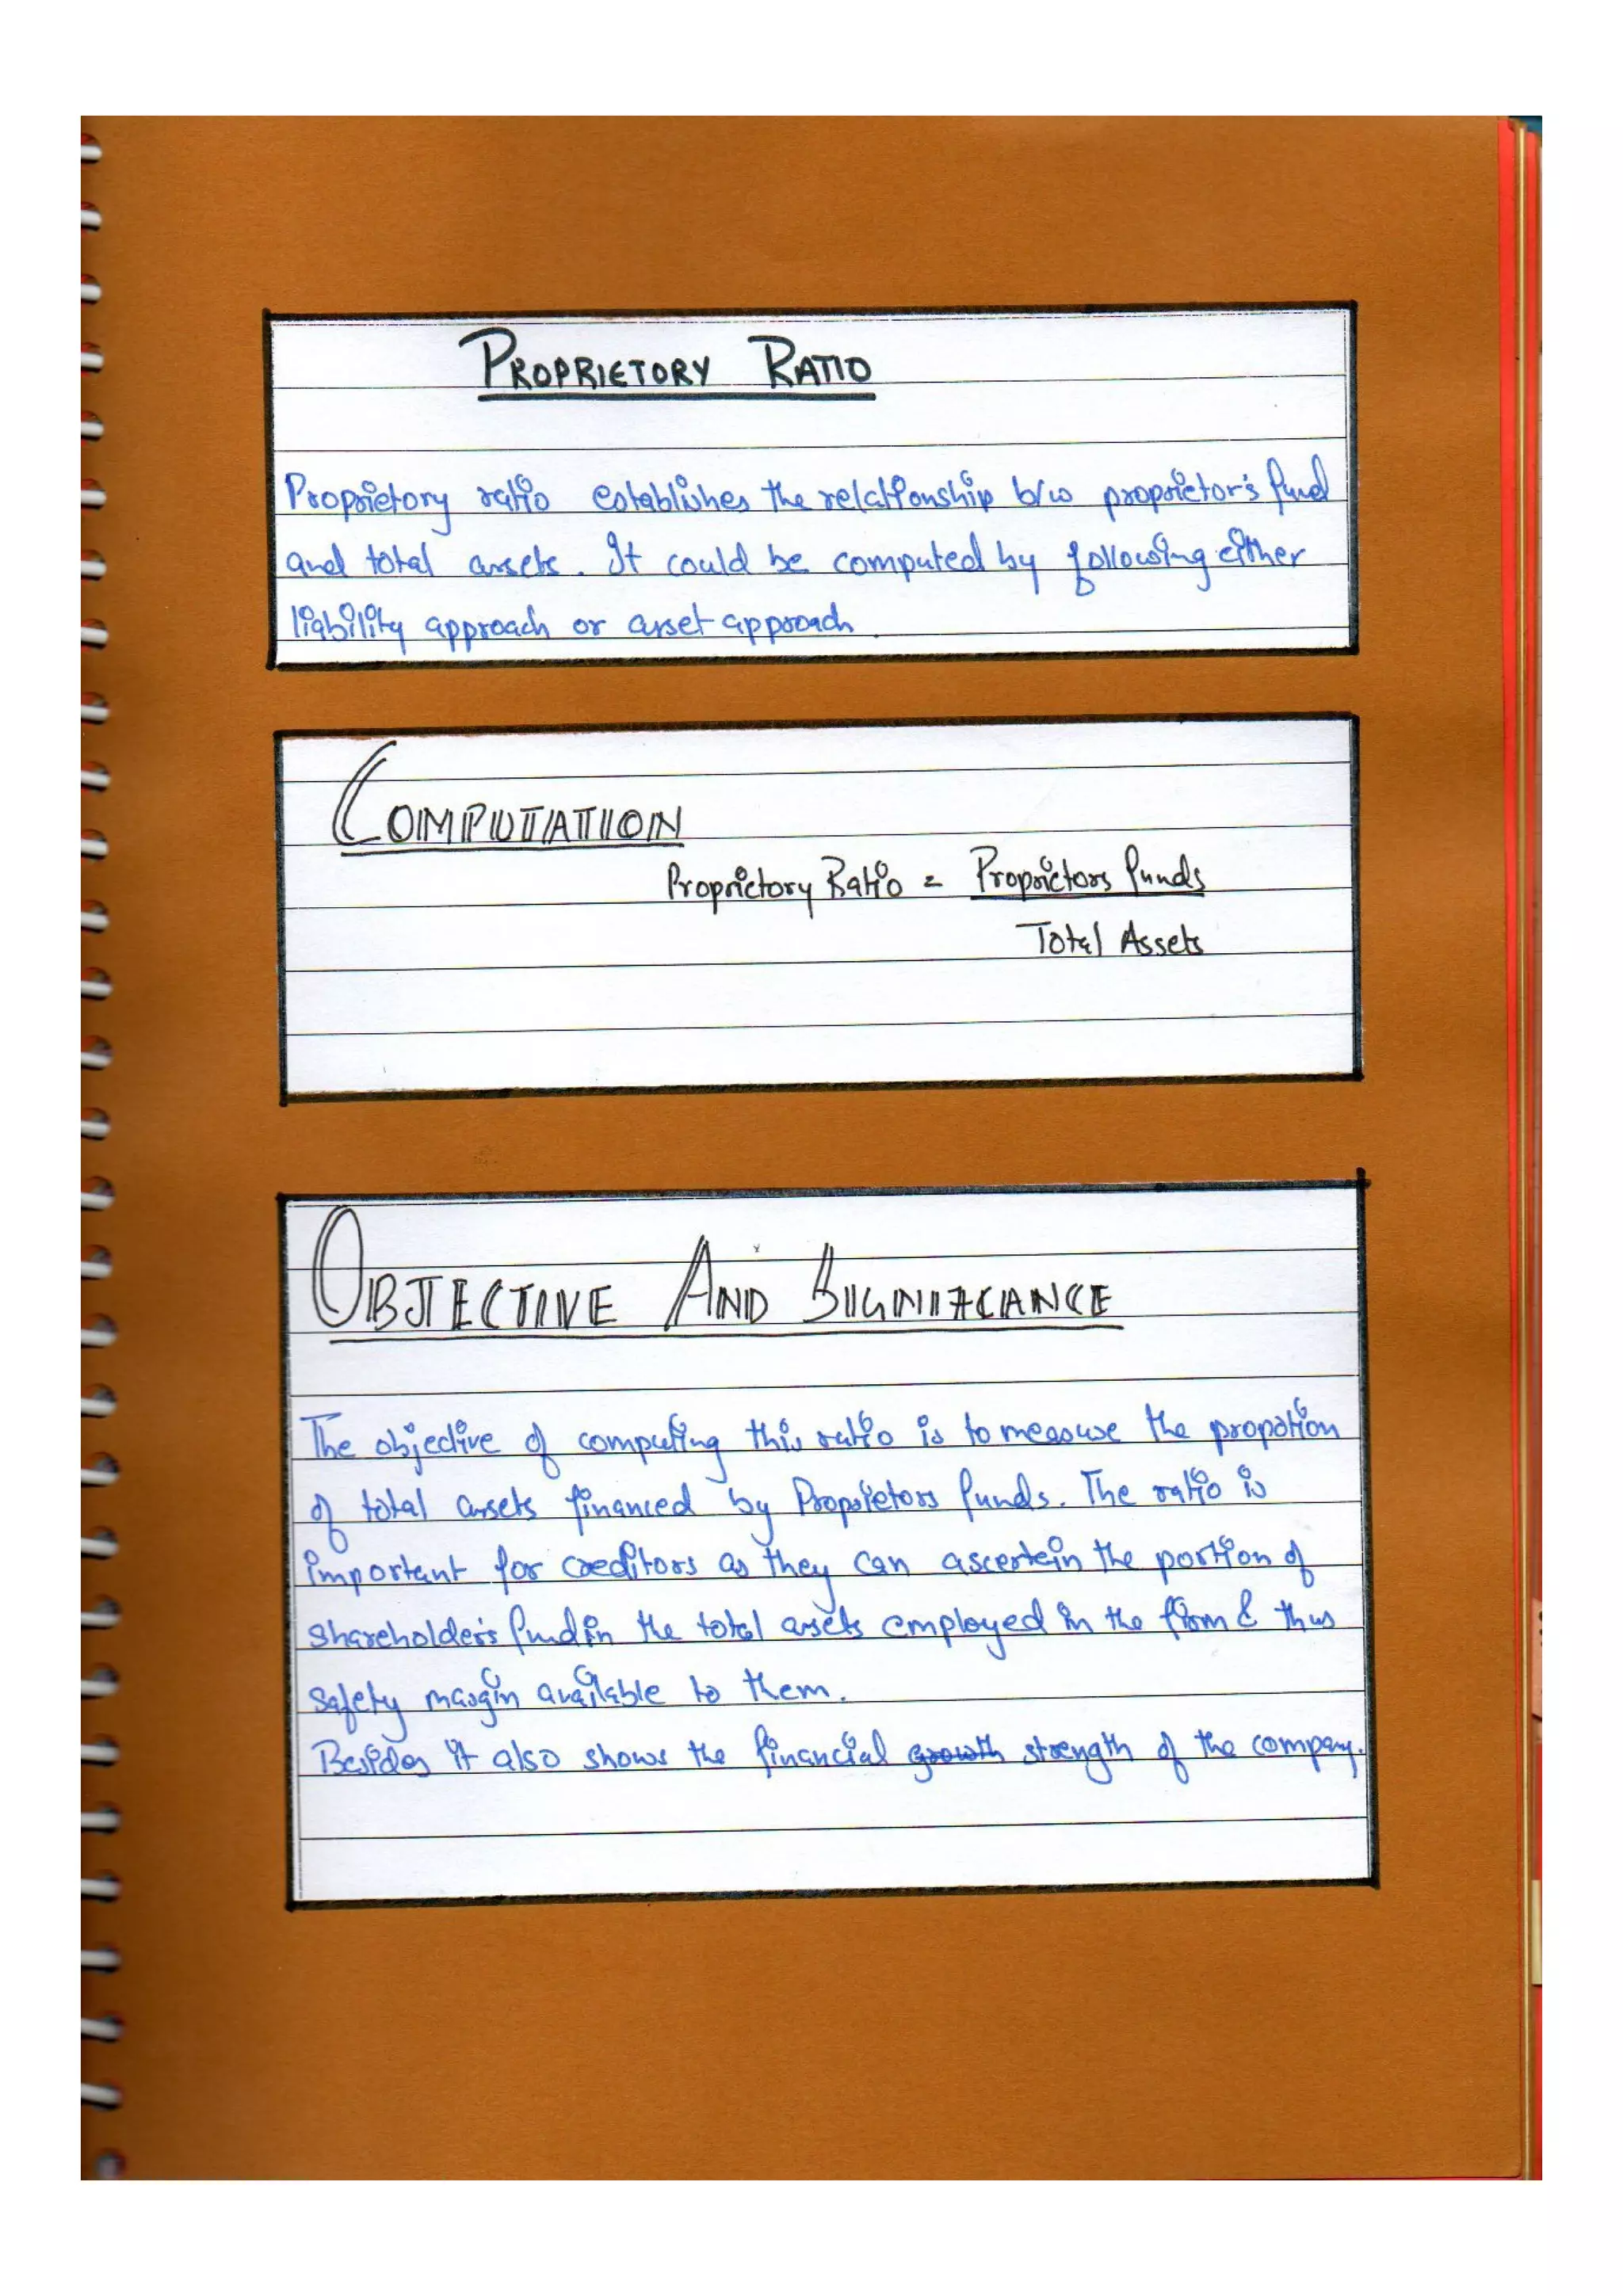 PROPRIETORY RATIO
Proprietory ratio establishes the relationship b/w proprietor's fund
and total assets. It could be computed by following either
liability approach or asset approach.
COMPUTATION
Proprietory Ratio = Proprietors funds
Total Assets
OBJECTIVE AND SIGNIFICANCE
The objective of computing this ratio is to measure the propotion
of total assets financed by Proprietors funds. The ratio is
important for creditors as they can ascertein the portion of
shareholder's fund in the total assets employed in the firm & thus
safety margin available to them.
Besides it also shows the financial growth strength of the company.